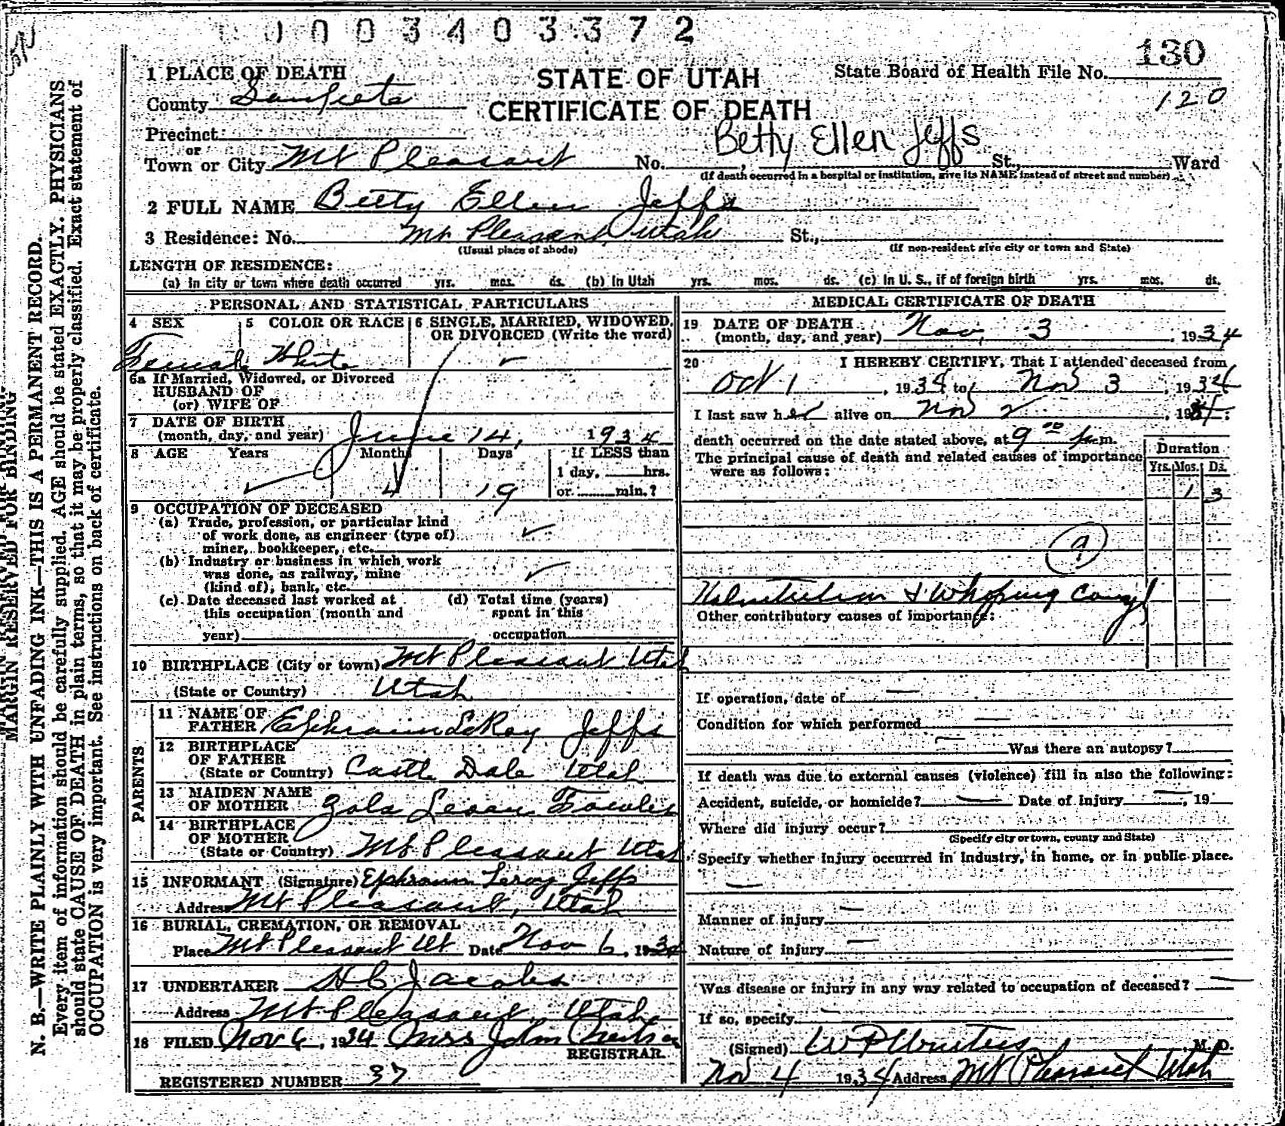 0003403372
130
1 PLACE OF DEATH
STATE OF UTAH
State Board of Health File No.
County Sanpete
CERTIFICATE OF DEATH
120
Precinct
or
Betty Ellen Jeffs
Town or City Mt Pleasant No. , St., Ward
(If death occurred in a hospital or institution, give its NAME instead of street and number)
2 FULL NAME Betty Ellen Jeffs
3 Residence: No. Mt Pleasant Utah St.,
(Usual place of abode) (If non-resident give city or town and State)
LENGTH OF RESIDENCE:
(a) in city or town where death occurred yrs. mos. ds. (b) in Utah yrs. mos. ds. (c) in U. S., if of foreign birth yrs. mos. ds.
PERSONAL AND STATISTICAL PARTICULARS
4 SEX 5 COLOR OR RACE 6 SINGLE, MARRIED, WIDOWED, OR DIVORCED (Write the word)
Female White ✓
6a If Married, Widowed, or Divorced
HUSBAND OF
(or) WIFE OF
7 DATE OF BIRTH
(month, day, and year) June 14, 1934
8 AGE Years Months Days If LESS than
1 day, hrs.
✓ 4 19 or min.?
9 OCCUPATION OF DECEASED
(a) Trade, profession, or particular kind
of work done, as engineer (type of)
miner, bookkeeper, etc. ✓
(b) Industry or business in which work
was done, as railway, mine
(kind of), bank, etc. ✓
(c) Date deceased last worked at (d) Total time (years)
this occupation (month and spent in this
year) occupation
10 BIRTHPLACE (City or town) Mt Pleasant Utah
(State or Country) Utah
PARENTS
11 NAME OF
FATHER Ephraim LeRoy Jeffs
12 BIRTHPLACE
OF FATHER
(State or Country) Castle Dale Utah
13 MAIDEN NAME
OF MOTHER Zola
14 BIRTHPLACE
OF MOTHER
(State or Country) Mt Pleasant Utah
15 INFORMANT (Signature) Ephraim Leroy Jeffs
Address Mt Pleasant, Utah
16 BURIAL, CREMATION, OR REMOVAL
Place Mt Pleasant Ut Date Nov 6, 1934
17 UNDERTAKER H C Jacobs
Address Mt Pleasant, Utah
18 FILED Nov 6, 1934 Mrs John
REGISTRAR.
REGISTERED NUMBER 37
MEDICAL CERTIFICATE OF DEATH
19 DATE OF DEATH
(month, day, and year) Nov, 3, 1934
20 I HEREBY CERTIFY, That I attended deceased from
Oct 1, 1934 to Nov 3, 1934
I last saw her alive on Nov 2, 1934:
death occurred on the date stated above, at 9 00 p.m.
The principal cause of death and related causes of importance
were as follows:
Duration
Yrs. Mos. Ds.
1 3
Whoping Cough
Other contributory causes of importance:
If operation, date of —
Condition for which performed —
— Was there an autopsy?
If death was due to external causes (violence) fill in also the following:
Accident, suicide, or homicide? — Date of Injury —, 19
Where did injury occur?
(Specify city or town, county and State)
Specify whether injury occurred in industry, in home, or in public place.
—
Manner of injury —
Nature of injury —
Was disease or injury in any way related to occupation of deceased? —
If so, specify
(Signed) M. D.
Nov 4 1934 Address Mt Pleasant Utah
MARGIN RESERVED FOR BINDING
N. B.—WRITE PLAINLY WITH UNFADING INK—THIS IS A PERMANENT RECORD.
Every item of information should be carefully supplied. AGE should be stated EXACTLY. PHYSICIANS
should state CAUSE OF DEATH in plain terms, so that it may be properly classified. Exact statement of
OCCUPATION is very important. See instructions on back of certificate.